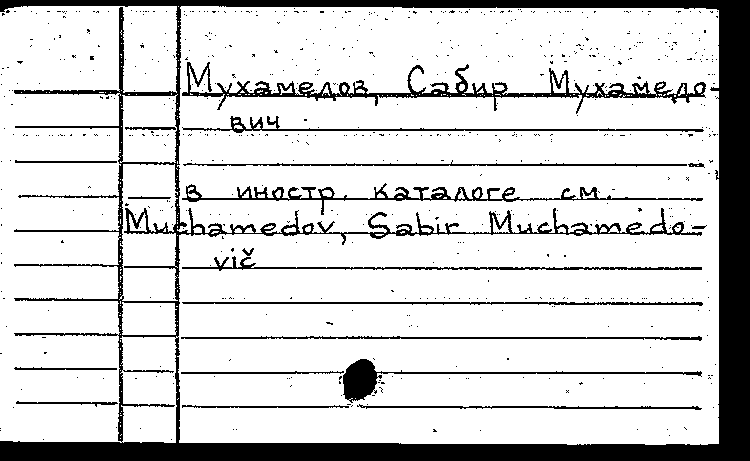 Мухамедов, Сабир Мухамедо-
вич
в иностр. каталоге см.
Muchamedov, Sabir Muchamedo-
vič